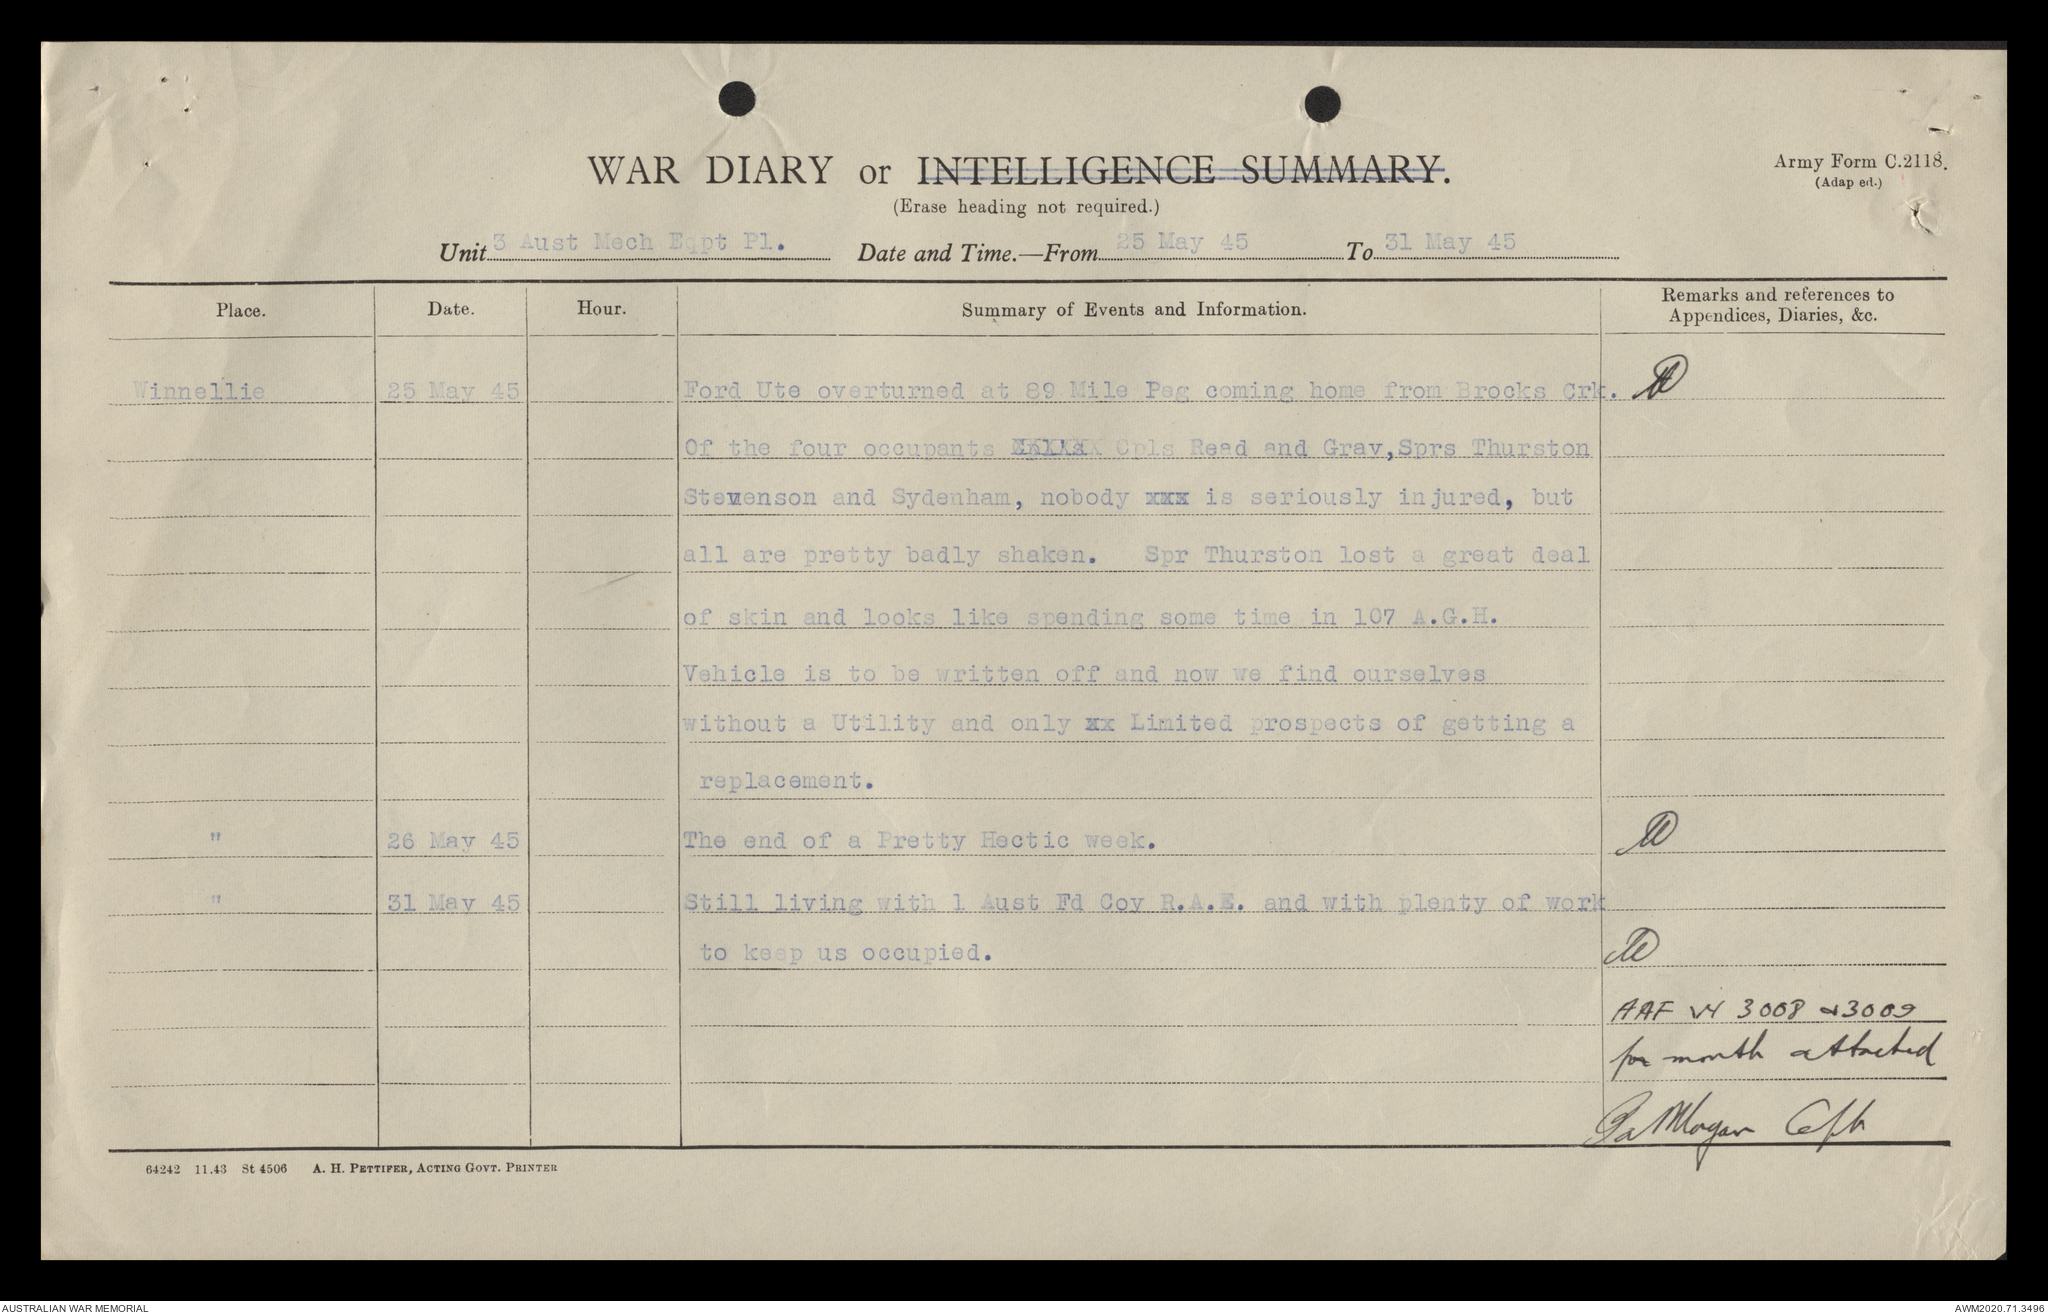 WAR DIARY or INTELLIGENCE SUMMARY.
Army Form C.2118.
(Adap ed.)
(Erase heading not required.)
Unit 3 Aust Mech Eqpt Pl. Date and Time.—From 25 May 45 To 31 May 45
Place. Date. Hour. Summary of Events and Information. Remarks and references to Appendices, Diaries, &c.
Winnellie 25 May 45 Ford Ute overturned at 89 Mile Peg coming home from Brocks Crk.
Of the four occupants Cpls Read and Gray,Sprs Thurston
Stevenson and Sydenham, nobody xxx is seriously injured, but
all are pretty badly shaken. Spr Thurston lost a great deal
of skin and looks like spending some time in 107 A.G.H.
Vehicle is to be written off and now we find ourselves
without a Utility and only xx Limited prospects of getting a
replacement.
" 26 May 45 The end of a Pretty Hectic week.
" 31 May 45 Still living with 1 Aust Fd Coy R.A.E. and with plenty of work
to keep us occupied.
AAF 3008 & 3009
for month attached
Morgan Capt
64242 11.43 St 4506 A. H. PETTIFER, ACTING GOVT. PRINTER
AUSTRALIAN WAR MEMORIAL
AWM2020.71.3496